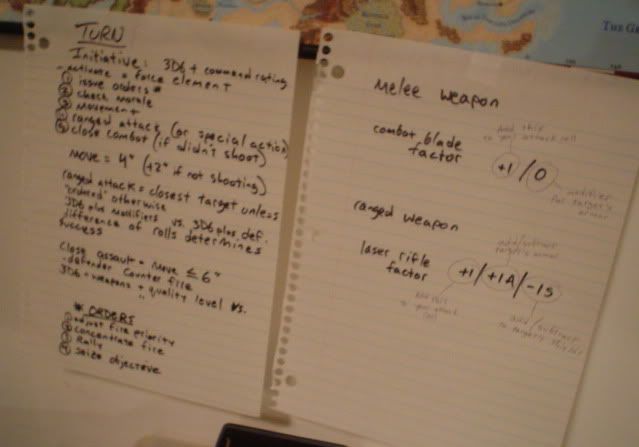 TURN
Initiative: 3D6 + command rating
- activate a force element
① issue orders *
② check morale
③ movement
④ ranged attack (or special action)
⑤ close combat (if didn't shoot)
Move = 4" (+2" if not shooting)
ranged attack = closest target unless
"ordered" otherwise
3D6 plus modifiers vs. 3D6 plus def.
difference of rolls determines
success
Close assault = Move ≤ 6"
- defender counter fire
3D6 + weapons + quality level vs.
"
* ORDERS
① adjust fire priority
② concentrate fire
③ Rally
④ seize objective
Melee weapon
combat blade
factor
Add this
to your attack roll
+1 / 0
modifier
for target's
armor
ranged weapon
add/subtract
target's armor
laser rifle
factor
+1 / +1A / -1S
Add this
to your attack
roll
add/subtract
to target's
THE GR